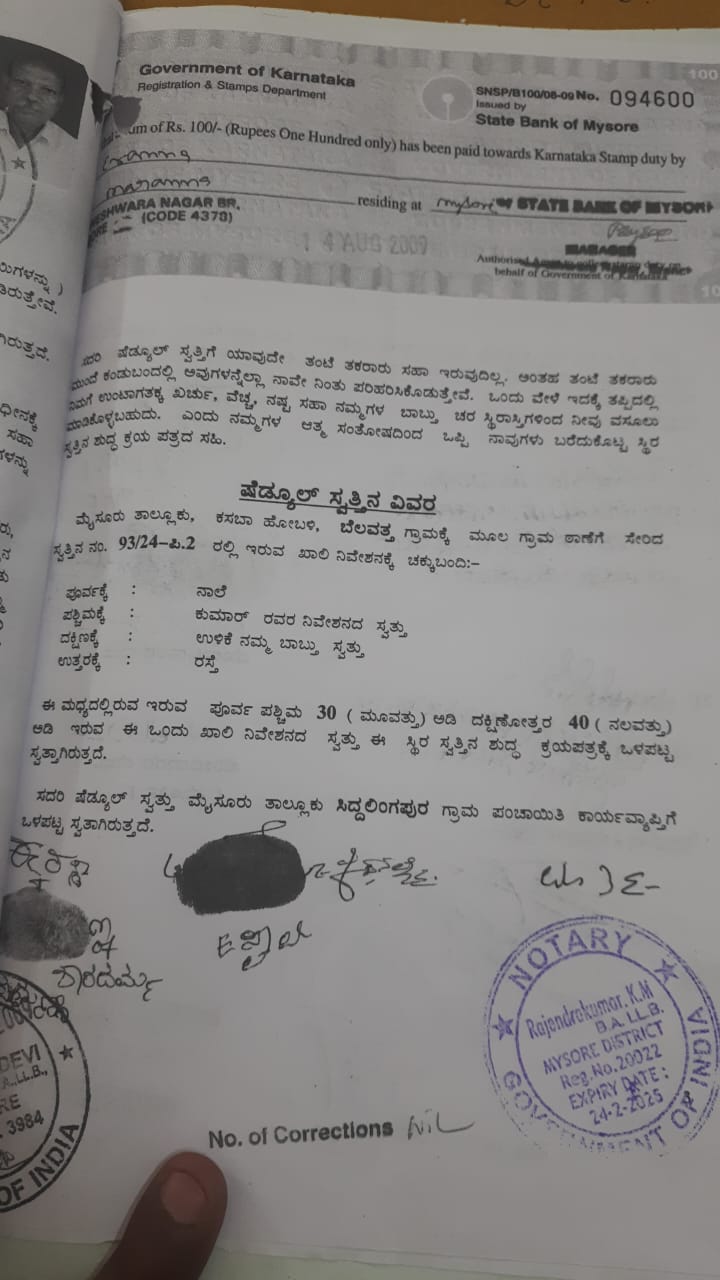 Government of Karnataka
Registration & Stamps Department
SNSP/B100/08-09 No. 094600
Issued by
State Bank of Mysore
um of Rs. 100/- (Rupees One Hundred only) has been paid towards Karnataka Stamp duty by
residing at mysore STATE BANK OF MYSORE
ESHWARA NAGAR BR.
(CODE 4378)
14 AUG 2009
MANAGER
behalf of Government of Karnataka
ಸದರಿ ಷೆಡ್ಯೂಲ್ ಸ್ವತ್ತಿಗೆ ಯಾವುದೇ ತಂಟೆ ತಕರಾರು ಸಹಾ ಇರುವುದಿಲ್ಲ. ಅಂತಹ ತಂಟೆ ತಕರಾರು
ಮುಂದೆ ಕಂಡುಬಂದಲ್ಲಿ ಅವುಗಳನ್ನೆಲ್ಲಾ ನಾವೇ ನಿಂತು ಪರಿಹರಿಸಿಕೊಡುತ್ತೇವೆ. ಒಂದು ವೇಳೆ ಇದಕ್ಕೆ ತಪ್ಪಿದಲ್ಲಿ
ನಿಮಗೆ ಉಂಟಾಗತಕ್ಕ ಖರ್ಚು, ವೆಚ್ಚ, ನಷ್ಟ ಸಹಾ ನಮ್ಮಗಳ ಬಾಬ್ತು ಚರ ಸ್ಥಿರಾಸ್ತಿಗಳಿಂದ ನೀವು ವಸೂಲು
ಮಾಡಿಕೊಳ್ಳಬಹುದು. ಎಂದು ನಮ್ಮಗಳ ಆತ್ಮ ಸಂತೋಷದಿಂದ ಒಪ್ಪಿ ನಾವುಗಳು ಬರೆದುಕೊಟ್ಟ ಸ್ಥಿರ
ಸ್ವತ್ತಿನ ಶುದ್ಧ ಕ್ರಯ ಪತ್ರದ ಸಹಿ.
ಷೆಡ್ಯೂಲ್ ಸ್ವತ್ತಿನ ವಿವರ
ಮೈಸೂರು ತಾಲ್ಲೂಕು, ಕಸಬಾ ಹೋಬಳಿ, ಬೆಲವತ್ತ ಗ್ರಾಮಕ್ಕೆ ಮೂಲ ಗ್ರಾಮ ಠಾಣೆಗೆ ಸೇರಿದ
ಸ್ವತ್ತಿನ ನಂ. 93/24-ಪಿ.2 ರಲ್ಲಿ ಇರುವ ಖಾಲಿ ನಿವೇಶನಕ್ಕೆ ಚಕ್ಕುಬಂದಿ:-
ಪೂರ್ವಕ್ಕೆ : ನಾಲೆ
ಪಶ್ಚಿಮಕ್ಕೆ : ಕುಮಾರ್ ರವರ ನಿವೇಶನದ ಸ್ವತ್ತು
ದಕ್ಷಿಣಕ್ಕೆ : ಉಳಿಕೆ ನಮ್ಮ ಬಾಬ್ತು ಸ್ವತ್ತು
ಉತ್ತರಕ್ಕೆ : ರಸ್ತೆ
ಈ ಮಧ್ಯದಲ್ಲಿರುವ ಇರುವ ಪೂರ್ವ ಪಶ್ಚಿಮ 30 ( ಮೂವತ್ತು) ಅಡಿ ದಕ್ಷಿಣೋತ್ತರ 40 ( ನಲವತ್ತು)
ಅಡಿ ಇರುವ ಈ ಒಂದು ಖಾಲಿ ನಿವೇಶನದ ಸ್ವತ್ತು ಈ ಸ್ಥಿರ ಸ್ವತ್ತಿನ ಶುದ್ಧ ಕ್ರಯಪತ್ರಕ್ಕೆ ಒಳಪಟ್ಟ
ಸ್ವತ್ತಾಗಿರುತ್ತದೆ.
ಸದರಿ ಷೆಡ್ಯೂಲ್ ಸ್ವತ್ತು ಮೈಸೂರು ತಾಲ್ಲೂಕು ಸಿದ್ದಲಿಂಗಪುರ ಗ್ರಾಮ ಪಂಚಾಯಿತಿ ಕಾರ್ಯವ್ಯಾಪ್ತಿಗೆ
ಒಳಪಟ್ಟ ಸ್ವತಾಗಿರುತ್ತದೆ.
NOTARY
Rajendrakumar. K.M
B.A. LL.B.
MYSORE DISTRICT
Reg.No.20022
EXPIRY DATE :
24-2-2025
GOVERNMENT OF INDIA
DEVI
3984
OF INDIA
No. of Corrections NiL